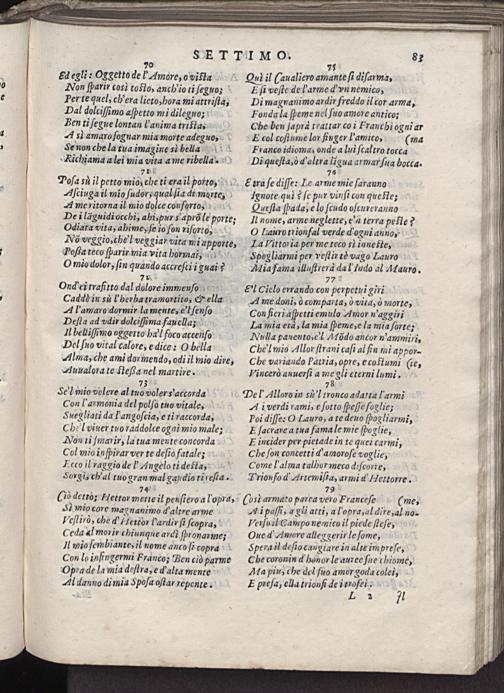 SETTIMO. 83
70
Ed egli: Oggetto de l'Amore, o vista
Non sparir così tosto, anch'io ti seguo;
Per te quel, ch'era lieto, hora mi attrista,
Dal dolcissimo aspetto mi dileguo;
Ben ti segue lontan l'anima trista,
A sì amaro sognar mia morte adeguo,
Se non che la tua imagine sì bella
Richiama a lei mia vita a me ribella.
71
Posa sù il petto mio, che ti era il porto,
Asciuga il mio sudor; qual sia di morte,
A me ritorna il mio dolce conforto,
De i lāguidi occhi, ahi, pur s'aprō le porte;
Odiata vita, ahime, se io son risorto,
Nō veggio, che'l veggiar vita mi apporte,
Possa teco sparir mia vita hormai,
O mio dolor, sin quando accresci i guai?
72
Ond'ei trafitto dal dolore immenso
Caddè in sù l'herba tramortito, & ella
A l'amaro dormir la mente, e'l senso
Desta ad vdir dolcissima fauella;
Il bellissimo oggetto ha'l foco accenso
Del suo vital calore, e dice: O bella
Alma, che ami dormendo, odi il mio dire,
Auualora te stessa nel martire.
73
Se'l mio volere al tuo voler s'accorda
Con l'armonia del polso tuo vitale,
Suegliati da l'angoscia, e ti raccorda,
Che'l viuer tuo raddolce ogni mio male;
Non ti smarir, la tua mente concorda
Col mio inspirar ver te desio fatale;
Ecco il raggio de l'Angelo ti desta,
Sorgi, ch'al tuo gran mal gaudio ti resta.
74
Ciò detto; Hettor mette il pensiero a l'opra,
Sì mio core magnanimo d'altre arme
Vestirò, che d'Hettor l'ardir si scopra,
Ceda al morir chiunque ardì spronarme;
Il mio sembiante, il nome anco si copra
Con lo infingermi Franco; Ben ciò parme
Opra de la mia destra, e d'alta mente
Al danno di mia Sposa ostar repente.
75
Quì il Caualiero amante si disarma,
E si veste de l'arme d'vn nemico,
Di magnanimo ardir freddo il cor arma,
Fonda la speme nel suo amore antico;
Che ben saprà trattar co i Franchi ogni ar
E col costume lor finger l'amico, (ma
Franco idioma, onde a lui scaltro tocca
Di questa, ò d'altra ligua armar sua bocca.
76
E tra se disse: Le arme mie saranno
Ignote quì? se pur vinsi con queste;
Questa spada, e lo scudo oscureranno
Il nome, arme neglette, e'n terra peste?
O Lauro trionfal verde d'ogni anno,
La Vittoria per me teco s'inneste,
Spogliarmi per vestir tè vago Lauro
Mia fama illustrerà da l'Indo al Mauro.
77
E'l Cielo errando con perpetui giri
A me doni, ò comparta, ò vita, ò morte,
Con fieri aspetti emulo Amor n'aggiri
La mia età, la mia speme, e la mia sorte;
Nulla pauento, e'l Mōdo ancor n'ammiri,
Che'l mio Allor strani casi al fin mi appor-
Che variando Patria, opre, e costumi (te,
Vincerò anuersi a me gli eterni lumi.
78
De l'Alloro in sù'l tronco adatta l'armi
A i verdi rami, e sotto spesse foglie;
Poi disse: O Lauro, a te deuo spogliarmi,
E sacrare a tua fama le mie spoglie,
E incider per pietade in te quei carmi,
Che son concetti d'amorose voglie,
Come l'alma talhor meco discorre,
Trionfo d'Artemisia, armi d'Hettorre.
79
Così armato parea vero Francese (me,
A i passi, a gli atti, a l'opra, al dire, al no-
Verso il Campo nemico il piede stese,
Oue d'Amore alleggerir le some,
Spera il desio cangiare in alte imprese,
Che coronin d'honor le auree sue chiome,
Ma più, che del suo amor goda colei,
E presa, ella trionfi de i trofei.
L 2 Il